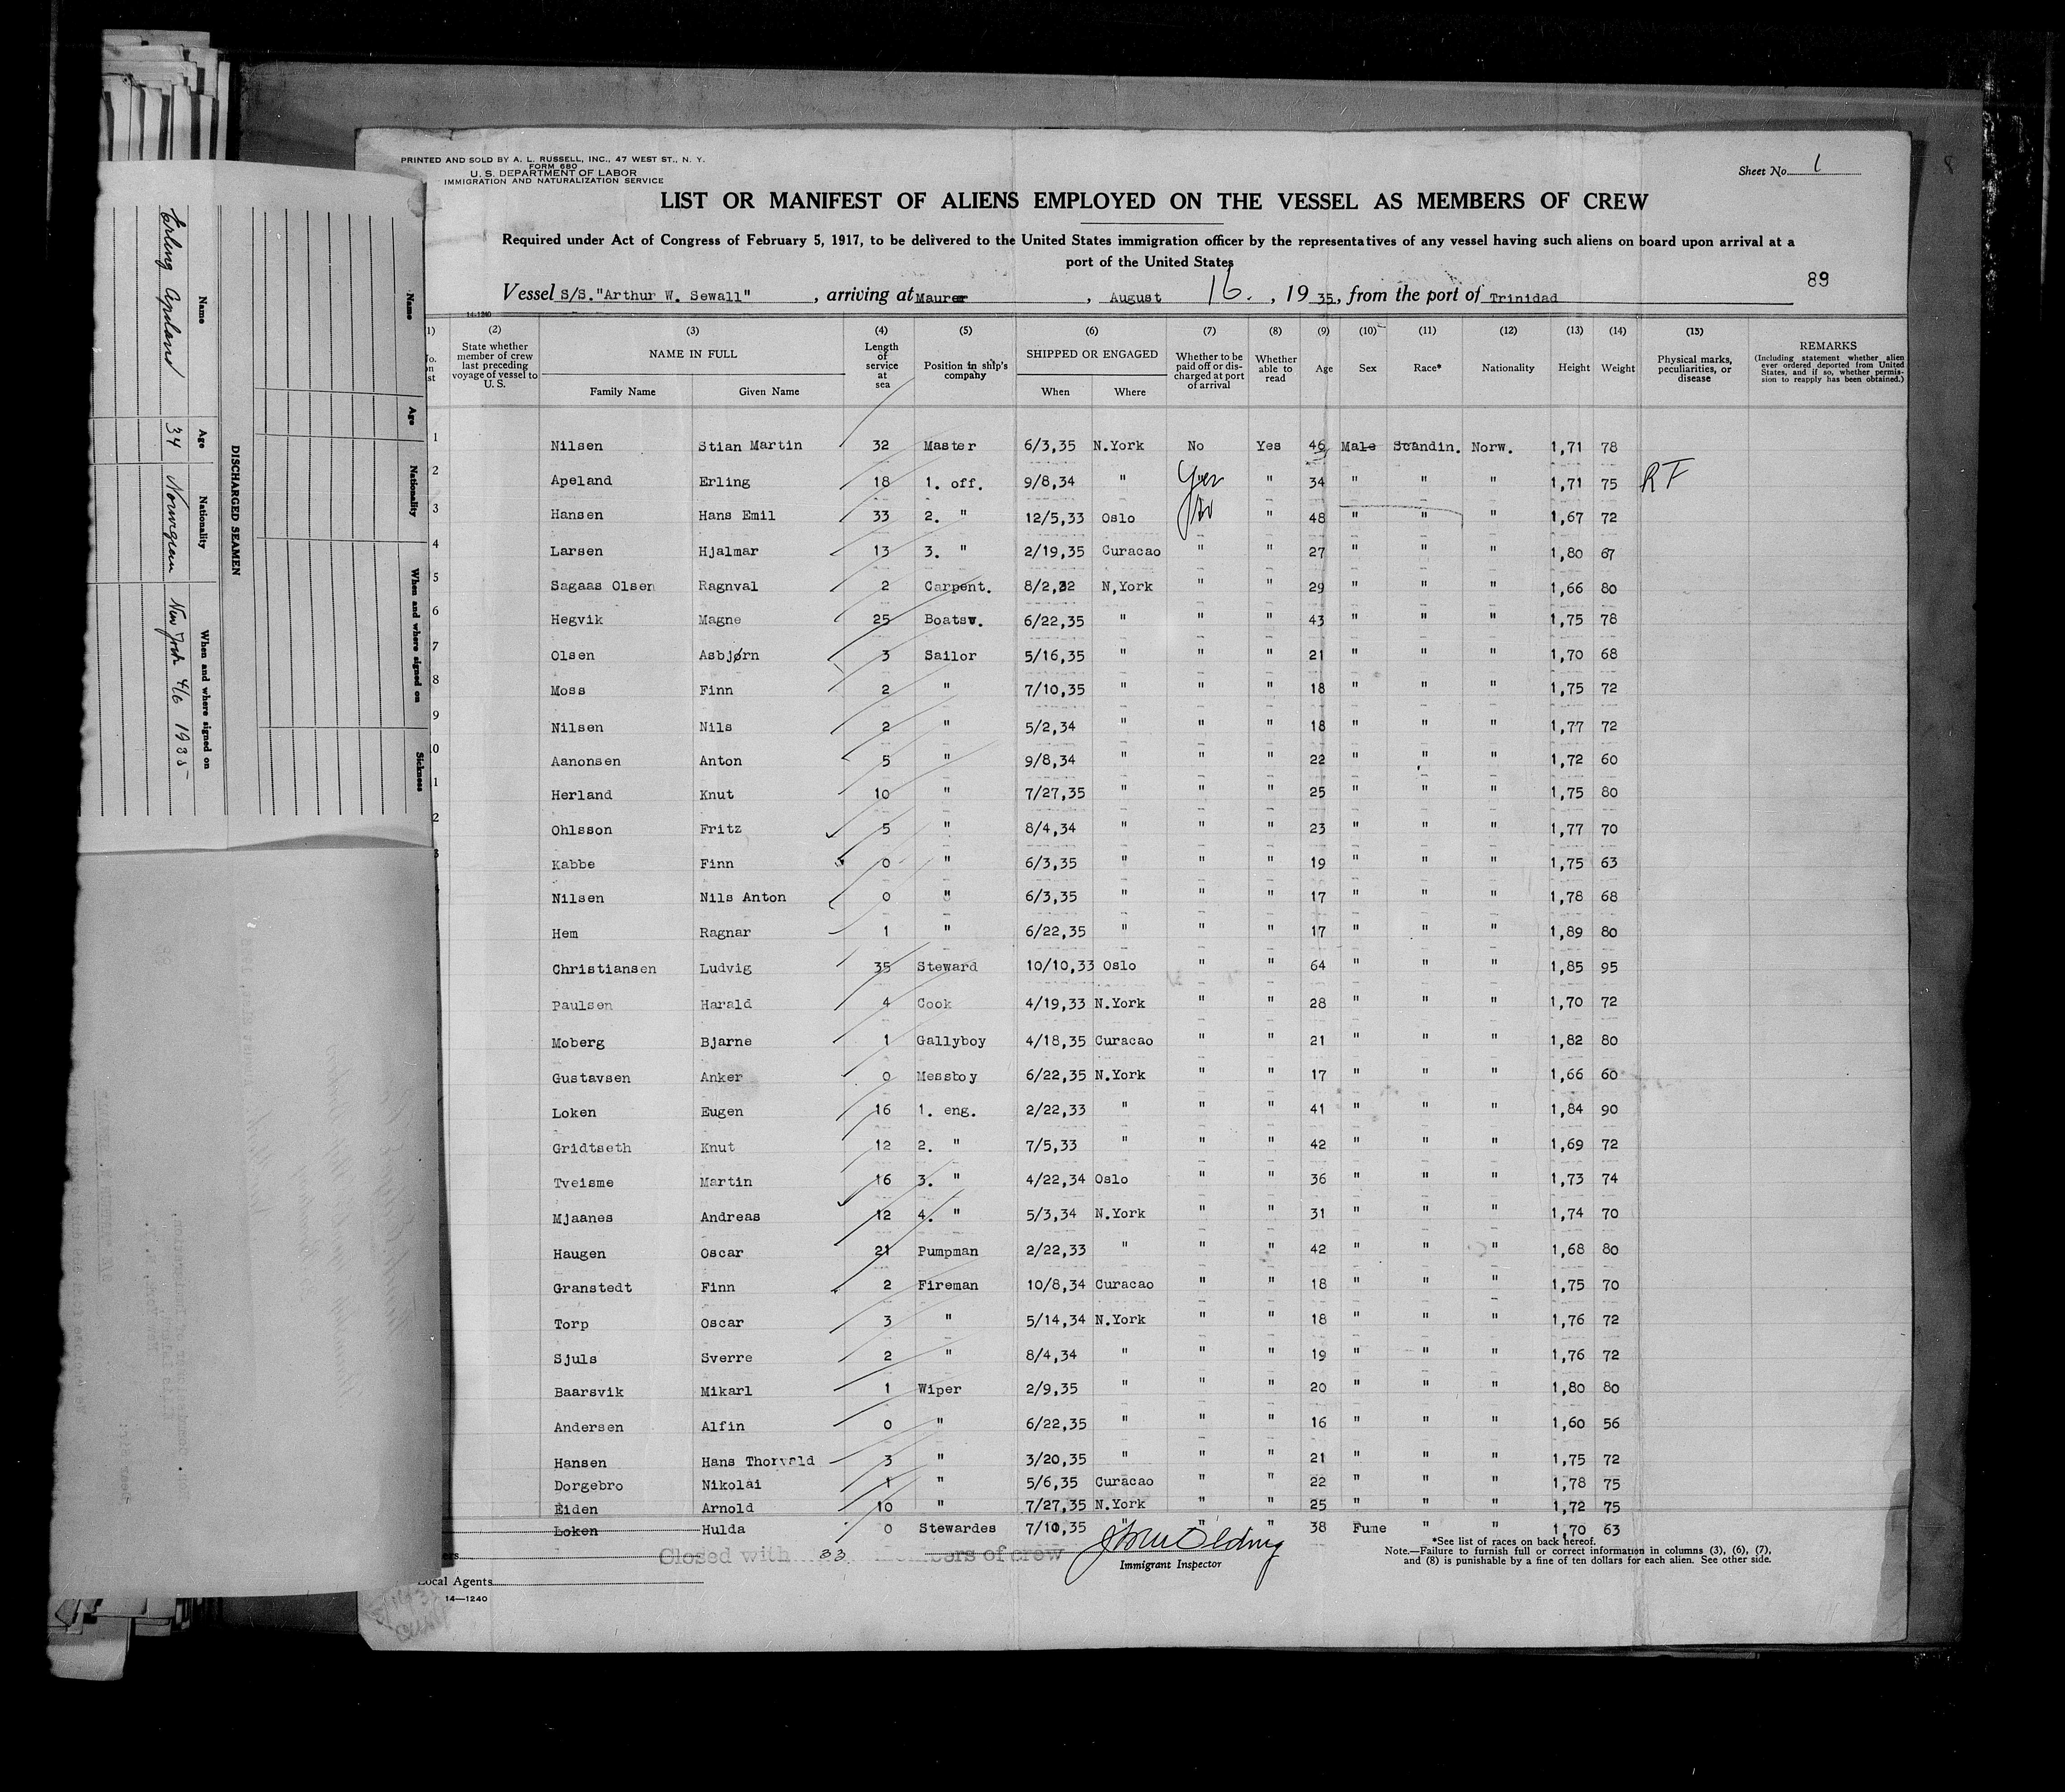 PRINTED AND SOLD BY A. L. RUSSELL, INC., 47 WEST ST., N. Y.
FORM 680
U. S. DEPARTMENT OF LABOR
IMMIGRATION AND NATURALIZATION SERVICE
Sheet No. 1
LIST OR MANIFEST OF ALIENS EMPLOYED ON THE VESSEL AS MEMBERS OF CREW
Required under Act of Congress of February 5, 1917, to be delivered to the United States immigration officer by the representatives of any vessel having such aliens on board upon arrival at a
port of the United States
89
Vessel S/S. "Arthur W. Sewall" , arriving at Maurer , August 16. , 19 35, from the port of Trinidad
14-1240
(1) (2) (3) (4) (5) (6) (7) (8) (9) (10) (11) (12) (13) (14) (15)
State whether member of crew last preceding voyage of vessel to U. S. NAME IN FULL Family Name Given Name Length of service at sea Position in ship's company SHIPPED OR ENGAGED When Where Whether to be paid off or discharged at port of arrival Whether able to read Age Sex Race* Nationality Height Weight Physical marks, peculiarities, or disease REMARKS (Including statement whether alien ever ordered deported from United States, and if so, whether permission to reapply has been obtained.)
1 Nilsen Stian Martin 32 Master 6/3,35 N.York No Yes 46 Male Scandin. Norw. 1,71 78
2 Apeland Erling 18 1. off. 9/8,34 " Yes " 34 " " " 1,71 75 RF
3 Hansen Hans Emil 33 2. " 12/5,33 Oslo No " 48 " " " 1,67 72
4 Larsen Hjalmar 13 3. " 2/19,35 Curacao " " 27 " " " 1,80 67
5 Sagaas Olsen Ragnval 2 Carpent. 8/2,32 N,York " " 29 " " " 1,66 80
6 Hegvik Magne 25 Boatsw. 6/22,35 " " " 43 " " " 1,75 78
7 Olsen Asbjørn 3 Sailor 5/16,35 " " " 21 " " " 1,70 68
8 Moss Finn 2 " 7/10,35 " " " 18 " " " 1,75 72
9 Nilsen Nils 2 " 5/2,34 " " " 18 " " " 1,77 72
10 Aanonsen Anton 5 " 9/8,34 " " " 22 " " " 1,72 60
1 Herland Knut 10 " 7/27,35 " " " 25 " " " 1,75 80
2 Ohlsson Fritz 5 " 8/4,34 " " " 23 " " " 1,77 70
3 Kabbe Finn 0 " 6/3,35 " " " 19 " " " 1,75 63
Nilsen Nils Anton 0 " 6/3,35 " " " 17 " " " 1,78 68
Hem Ragnar 1 " 6/22,35 " " " 17 " " " 1,89 80
Christiansen Ludvig 35 Steward 10/10,33 Oslo " " 64 " " " 1,85 95
Paulsen Harald 4 Cook 4/19,33 N.York " " 28 " " " 1,70 72
Moberg Bjarne 1 Gallyboy 4/18,35 Curacao " " 21 " " " 1,82 80
Gustavsen Anker 0 Messboy 6/22,35 N.York " " 17 " " " 1,66 60
Loken Eugen 16 1. eng. 2/22,33 " " " 41 " " " 1,84 90
Gridtseth Knut 12 2. " 7/5,33 " " " 42 " " " 1,69 72
Tveisme Martin 16 3. " 4/22,34 Oslo " " 36 " " " 1,73 74
Mjaanes Andreas 12 4. " 5/3,34 N.York " " 31 " " " 1,74 70
Haugen Oscar 21 Pumpman 2/22,33 " " " 42 " " " 1,68 80
Granstedt Finn 2 Fireman 10/8,34 Curacao " " 18 " " " 1,75 70
Torp Oscar 3 " 5/14,34 N.York " " 18 " " " 1,76 72
Sjuls Sverre 2 " 8/4,34 " " " 19 " " " 1,76 72
Baarsvik Mikarl 1 Wiper 2/9,35 " " " 20 " " " 1,80 80
Andersen Alfin 0 " 6/22,35 " " " 16 " " " 1,60 56
Hansen Hans Thorvald 3 " 3/20,35 " " " 21 " " " 1,75 72
Dorgebro Nikolai 1 " 5/6,35 Curacao " " 22 " " " 1,78 75
Eiden Arnold 10 " 7/27,35 N.York " " 25 " " " 1,72 75
Loken Hulda 0 Stewardes 7/10,35 " " " 38 Fume " " 1,70 63
Closed with 33 members of crew
Immigrant Inspector
*See list of races on back hereof.
Note.—Failure to furnish full or correct information in columns (3), (6), (7),
and (8) is punishable by a fine of ten dollars for each alien. See other side.
Local Agents
14—1240
Name Age Nationality When and where signed on Sickness
DISCHARGED SEAMEN
Name Age Nationality When and where signed on
Erling Apeland 34 Norwegian New York 4/6 1935